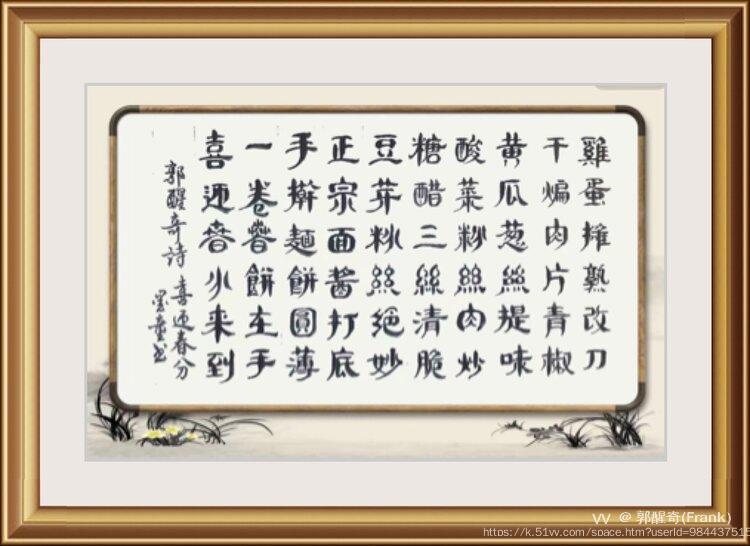 雞蛋摊熟改刀
干煸肉片青椒
黄瓜葱絲提味
酸菜粉絲肉炒
糖醋三絲清脆
豆芽粉絲絕妙
正宗面酱打底
手擀麵餅圓薄
一卷春餅在手
喜迎春分来到
郭醒奇詩 喜迎春分
VV @ 郭醒奇(Frank)
https://k.51vv.com/space.htm?userId=984437515